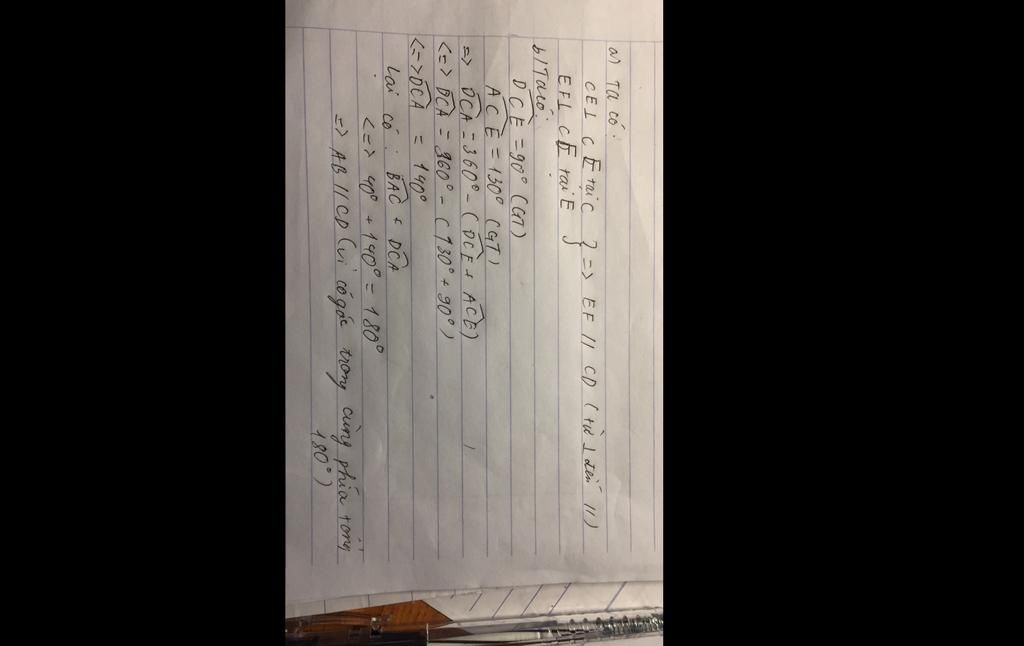 a) Ta có:
CE⊥ CE tại C } => EF // CD (từ ⊥ đến //)
EF⊥ CE tại E
b) Ta có:
DCE = 90° (GT)
ACE = 130° (GT)
=> DCA = 360° - (DCE + ACE)
<=> DCA = 360° - (130° + 90°)
<=> DCA = 140°
Lại có: BAC + DCA
<=> 40° + 140° = 180°
=> AB // CD (vì có góc trong cùng phía tổng
180°)